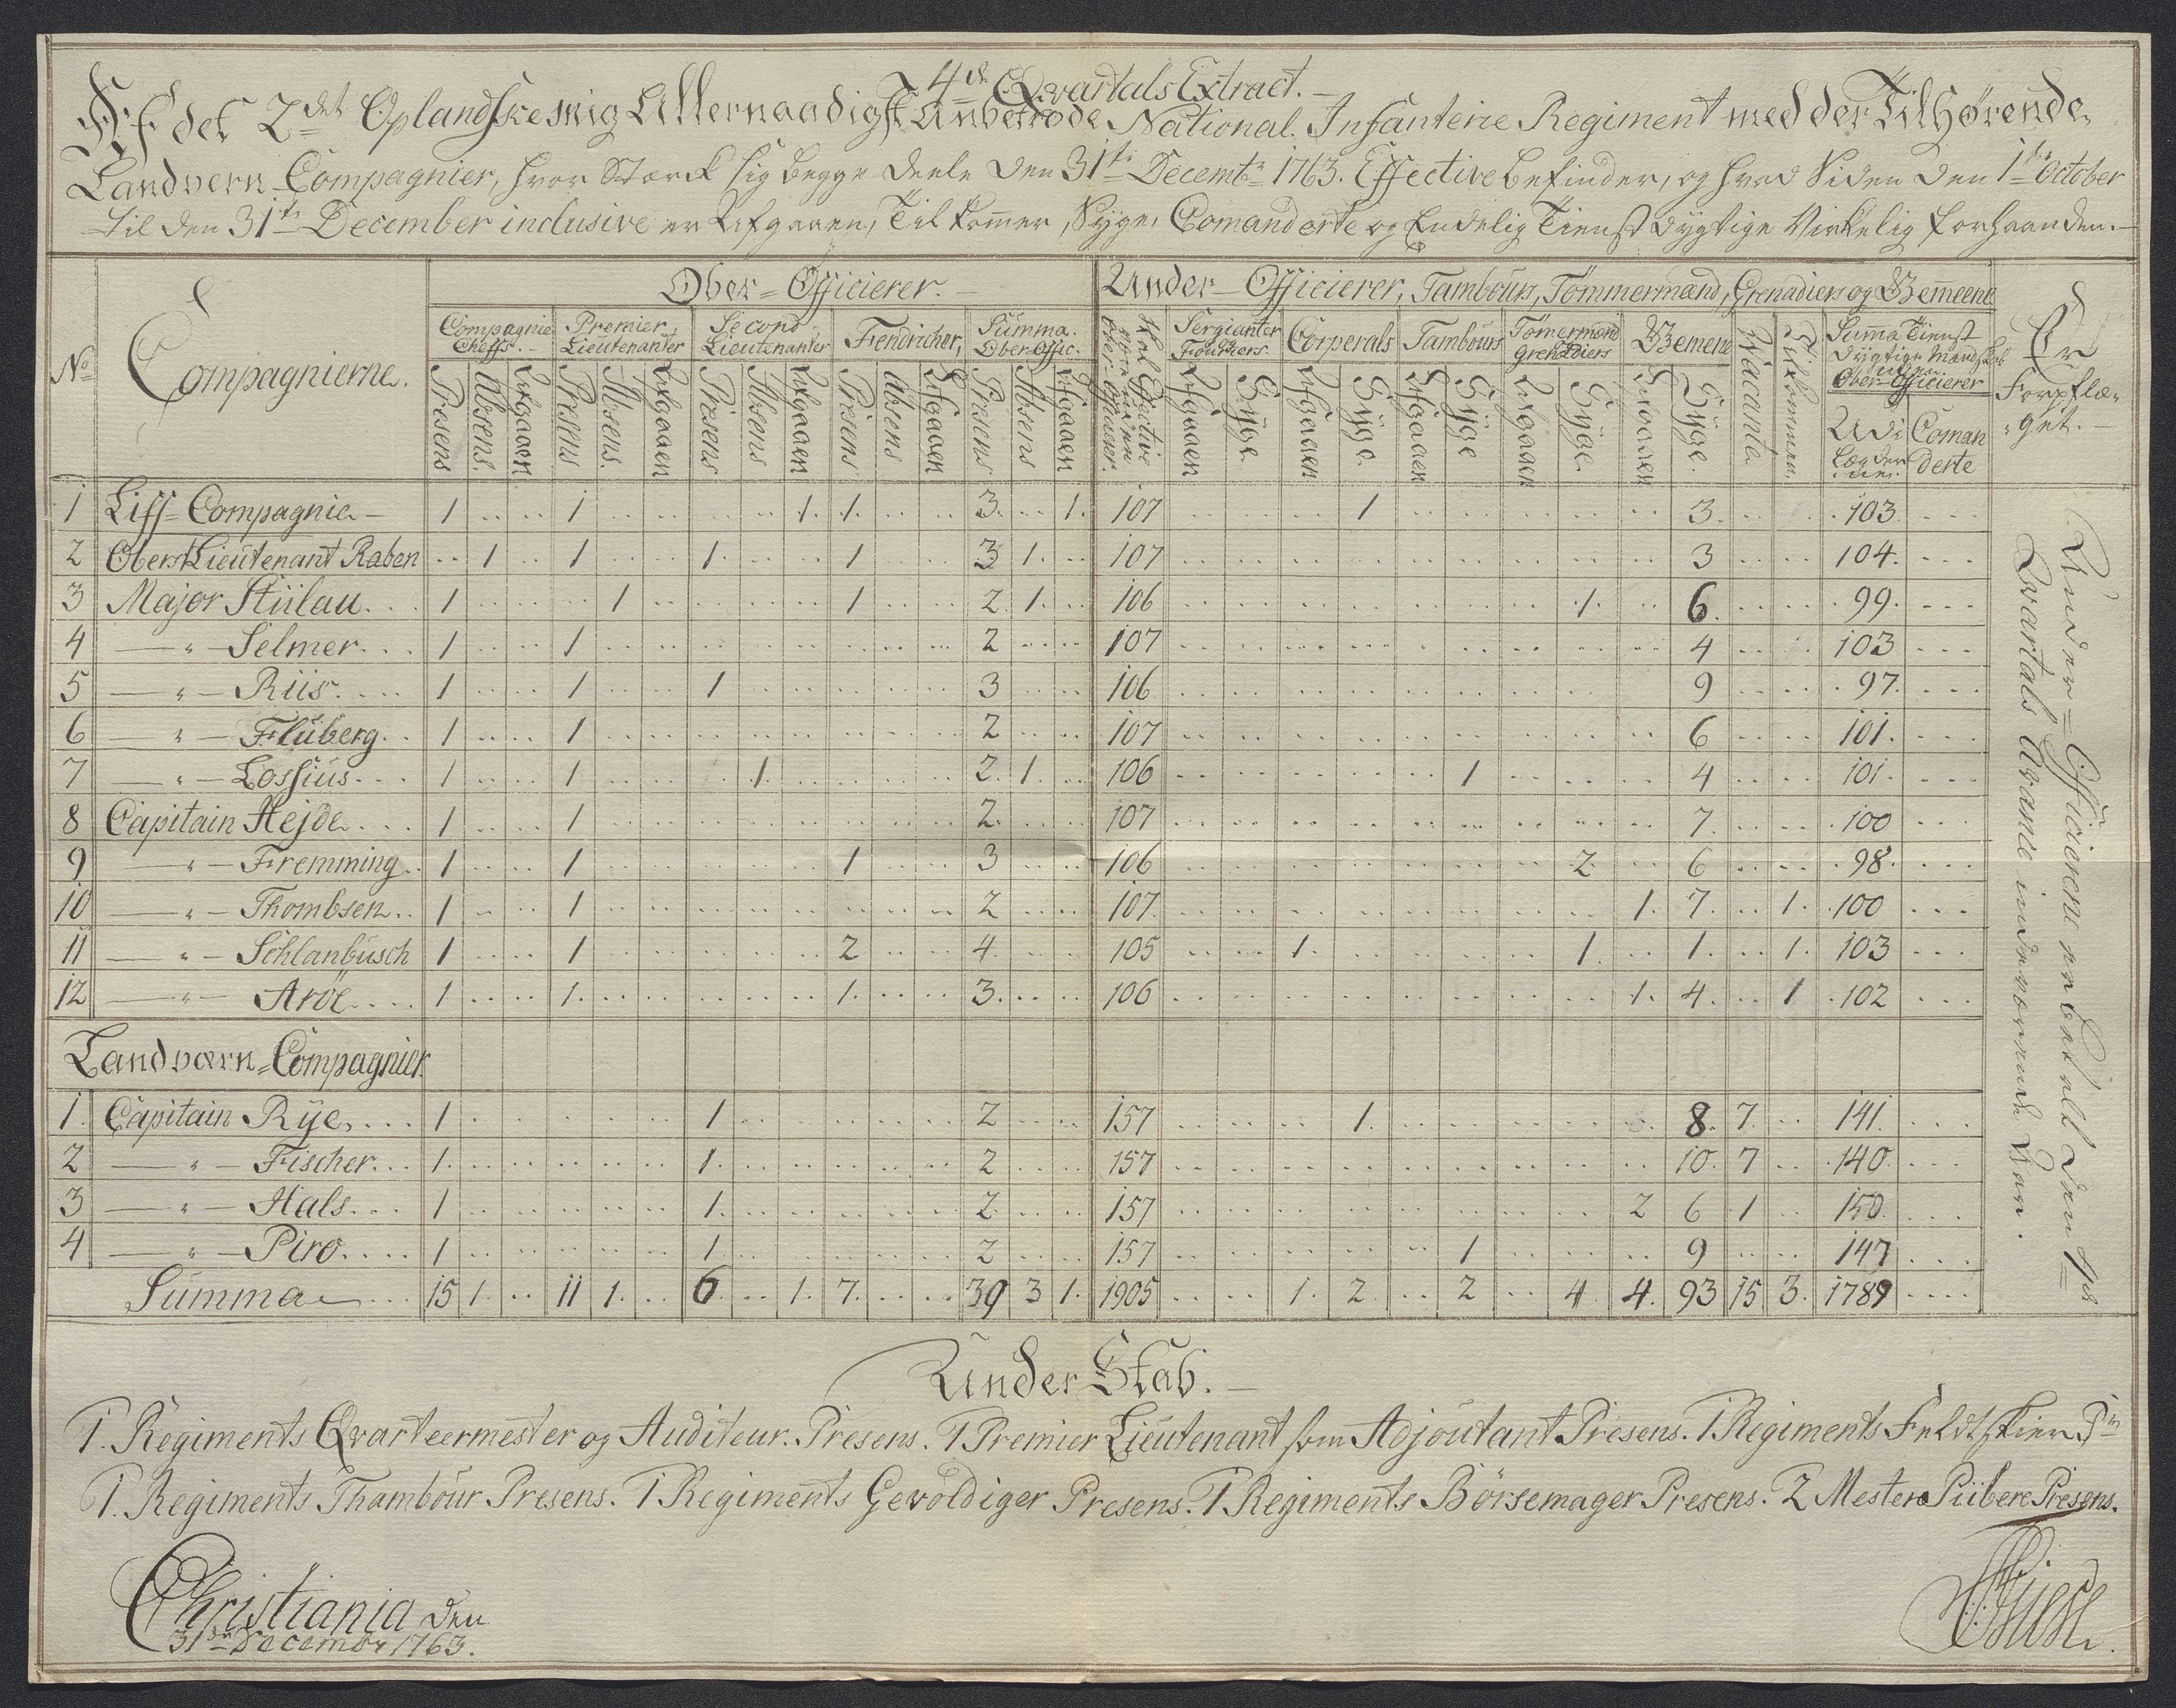 4de Qvartals Extract.
Af det 2det Oplandske mig Allernaadigst Anbetroede National Infanterie Regiment med der Tilhørende
Landvern Compagnier, hvor Stærck sig begge Deele den 31te Decembr 1763. Effective befinder, og hvad Siden den 1te October
til den 31te December inclusive er Afgaaen, Tilkomer, Syge, Comanderte og Endelig Tienstdygtige Virkelig forhaanden.
Ober-Officierer. Under-Officierer, Tambours, Tömmermænd, Grenadiers og Gemeene
No Compagnierne. Compagnie Cheffs. Premier Lieutenanter Second Lieutenanter Fendricher, Summa. Ober-Offic. Skal Effective være uden Ober-Officierer. Sergianter Fouriers Corperals Tambours Tömermænd og Grenadiers Gemene Vacante Tilkommen Suma Tienst dygtige Mandskab uden Ober-Officierer Er Forpflæget.
Presens Absens. Afgaaen Presens Absens. Afgaaen Presens Absens Afgaaen Presens Absens Afgaaen Presens Absens Afgaaen Afgaaen Syge Afgaaen Syge Afgaaen Syge Afgaaen Syge Afgaaen Syge Udi Lægderne. Comanderte
1 Liff-Compagnie 1 1 1. 1. 3. 1. 107 1 3. 103
2 OberstLieutenant Raben 1 1 1. 1 3 1. 107 3 104.
3 Major Stülau 1 1 1 2. 1. 106 1. 6. 99.
4 " Selmer 1 1 2 107 4 103
5 " Riis 1 1 1 3 106 9 97.
6 " Fluberg 1 1 2 107 6 101.
7 " Lossius 1 1 1. 2. 1. 106 1 4 101.
8 Capitain Hejde 1 1 2. 107 7. 100
9 " Fremming 1 1 1 3 106 2 6 98.
10 " Thombsen 1 1 2 107. 1. 7. 1. 100
11 " Schlanbusch 1 1 2 4. 105 1. 1. 1. 1. 103
12 " Aröe 1 1. 1. 3. 106 1. 4. 1 102
Landværn-Compagnier.
1. Capitain Rye 1 1 2 157 1. 8. 7. 141.
2 " Fischer 1. 1. 2 157 10. 7 140
3 " Hals 1 1. 2. 157 2 6 1 150
4 " Piro 1 1. 2 157 1 9 147
Summa 15 1. 11 1. 6 1. 7. 39 3 1. 1905 1. 2. 2 4 4. 93 15 3. 1789
Under-Officierene er betalt den 4de
Qvartals Avance indeværende Aar.
Under Stab.
1. Regiments Qvarteermester og Auditeur. Presens. 1 Premier Lieutenant som Adjoutant Presens. 1 Regiments Feldtskier
1. Regiments Thambour Presens. 1 Regiments Gevoldiger Presens. 1 Regiments Börsemager Presens. 2 Mester Piibere Presens.
Christiania den
31te December 1763.